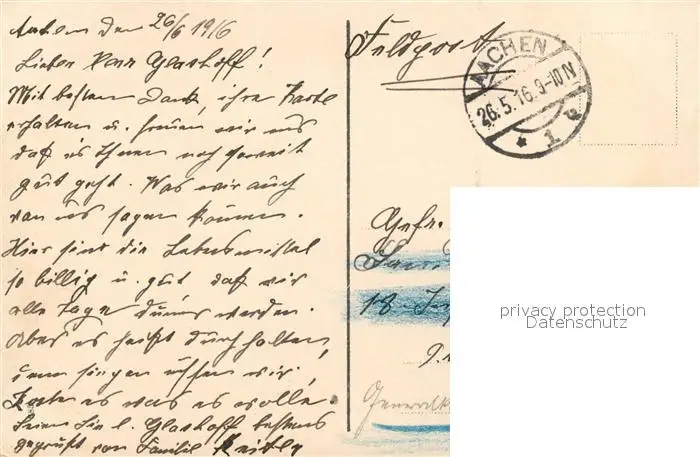 Aachen den 26/6 1916
Lieber Herr Glashoff!
Mit besten Dank, ihre Karte
erhalten u. freuen wir uns
daß es Ihnen noch soweit
gut geht. Was wir auch
von uns sagen können.
Hier sind die Lebensmittel
so billig u. gut, daß wir
alle Tage dünner werden.
Aber es heißt durchhalten,
denn siegen müssen wir,
Koste es was es wolle
Seien Sie l. Glashoff bestens
Gegrüßt von Familie
Feldpost
AACHEN
26.5.16.9-10N
* 1
Gefr.
18.
privacy protection
Datenschutz